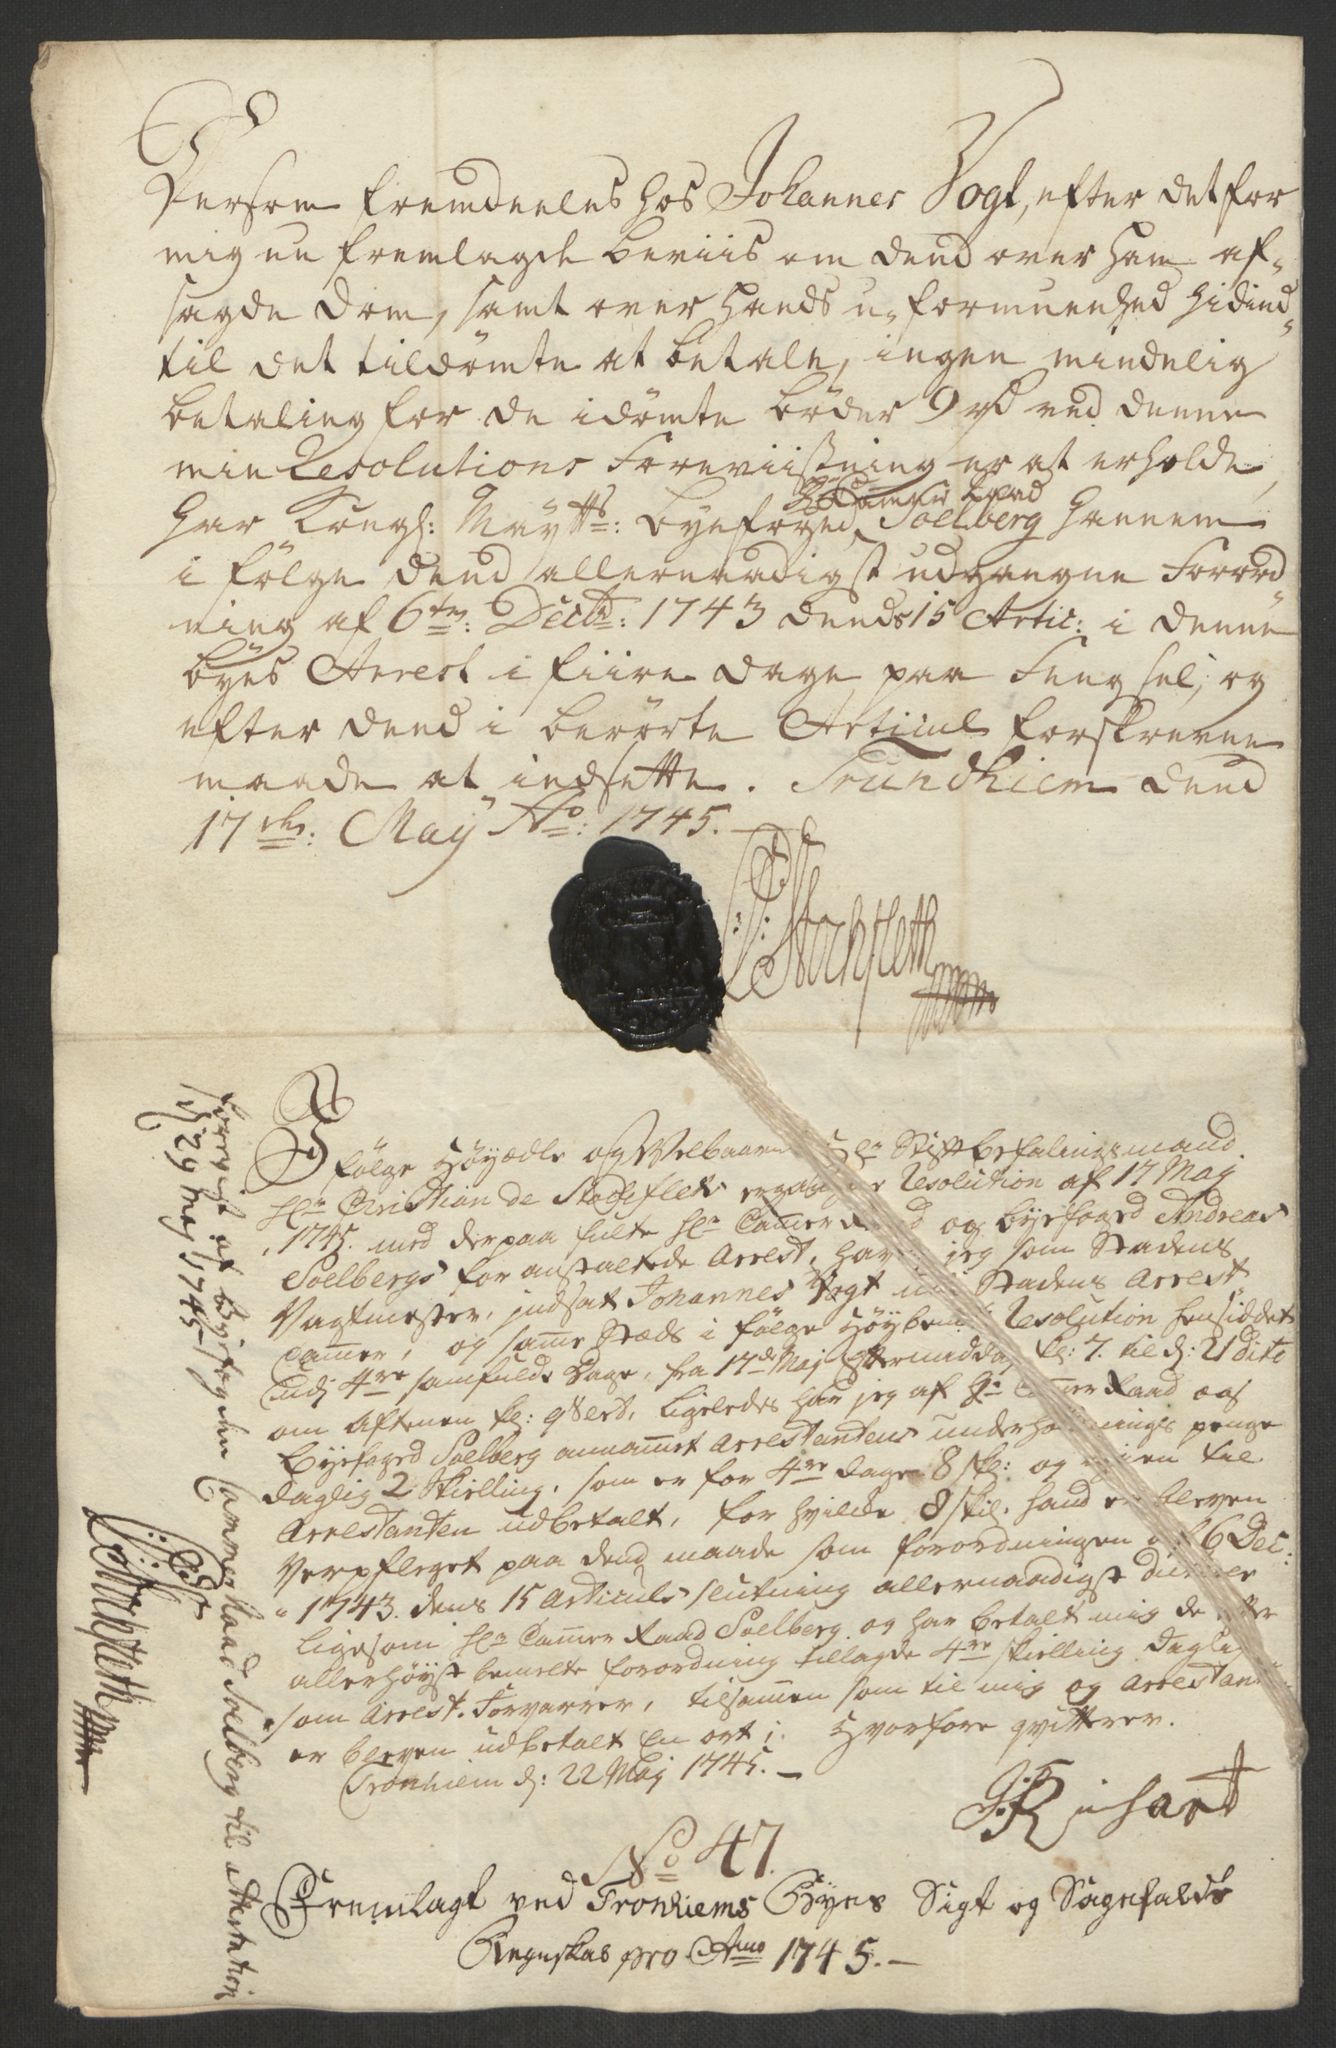 Dersom fremdeeles hos Johannes Vogt, efter det for
mig nu fremlagde beviis om dend over ham af-
sagde Dom, samt over hands u-formuenhed hidind-
til det tildömte at betale, ingen mindelig
betaling for de idömte böder 9 rd ved denne
min Resolutions Foreviisning er at erholde,
Hr Cammer Raad
har Kongl: Maytts: byefoged Soelberg hannem
i fölge dend allernaadigst udgangne Forord-
ning af 6te: Decbr: 1743 dends 15 Artic: i denne
byes Arrest i fiire dage paa Fengsel, og
efter dend i berörte Articul forskrevne
maade at indsette. Trundhiem dend
17de: May Ao: 1745.
C: D: Stockfleth
I fölge Höyædle og Velbaarne Hr Stiftbefalingsmand
Hr Christian de Stockfleth ergangne Resolution af 17 May
1745. med derpaa fulte Hr Camer Raad og byefoged Andreas
Soelbergs foranstaltede Arrest, haver jeg som Stadens
Vagtmester, indsat Johannes Vogt ud i Stadens Arrest
Camer, og same Stæds i fölge Höybemte Resolution hensiddet
udj 4re samfulde Dage, fra 17de Maj Eftermiddag kl: 7. til d: 21 dito
om aftenen kl: qvert, ligeledes har jeg af Hr Camer Raad og
Byefoged Soelberg annamet Arrestantens underholdnings penge
daglig 2 Skielling, som er for 4re dage 8 sk: og igien til
Arrestanten udbetalt, for hvilcke 8 skil. hand er bleven
Verpfleget paa dend maade som forordningen af 6 Dec:
1743. dens 15 Articuls slutning allernaadigst
ligesom Hr Camer Raad Soelberg og har betalt mig de efter
allerhöyst bemelte forordning tillagde 4re skielling daglig
som Arrest-Forvarrer, tilsamen som til mig og Arrestanten
er bleven udbetalt En ort; Hvorfore qvitterer.
Tronhiem d: 22 Maj 1745.
No 47.
Fremlagt ved Tronhiems Byes Sigt og Sagefalds
Regnskab pro Anno 1745.
Foreviist af Byefogden Cammer Raad Soelberg til Attestation
d: 29 may 1745
C: D: Stockfleth